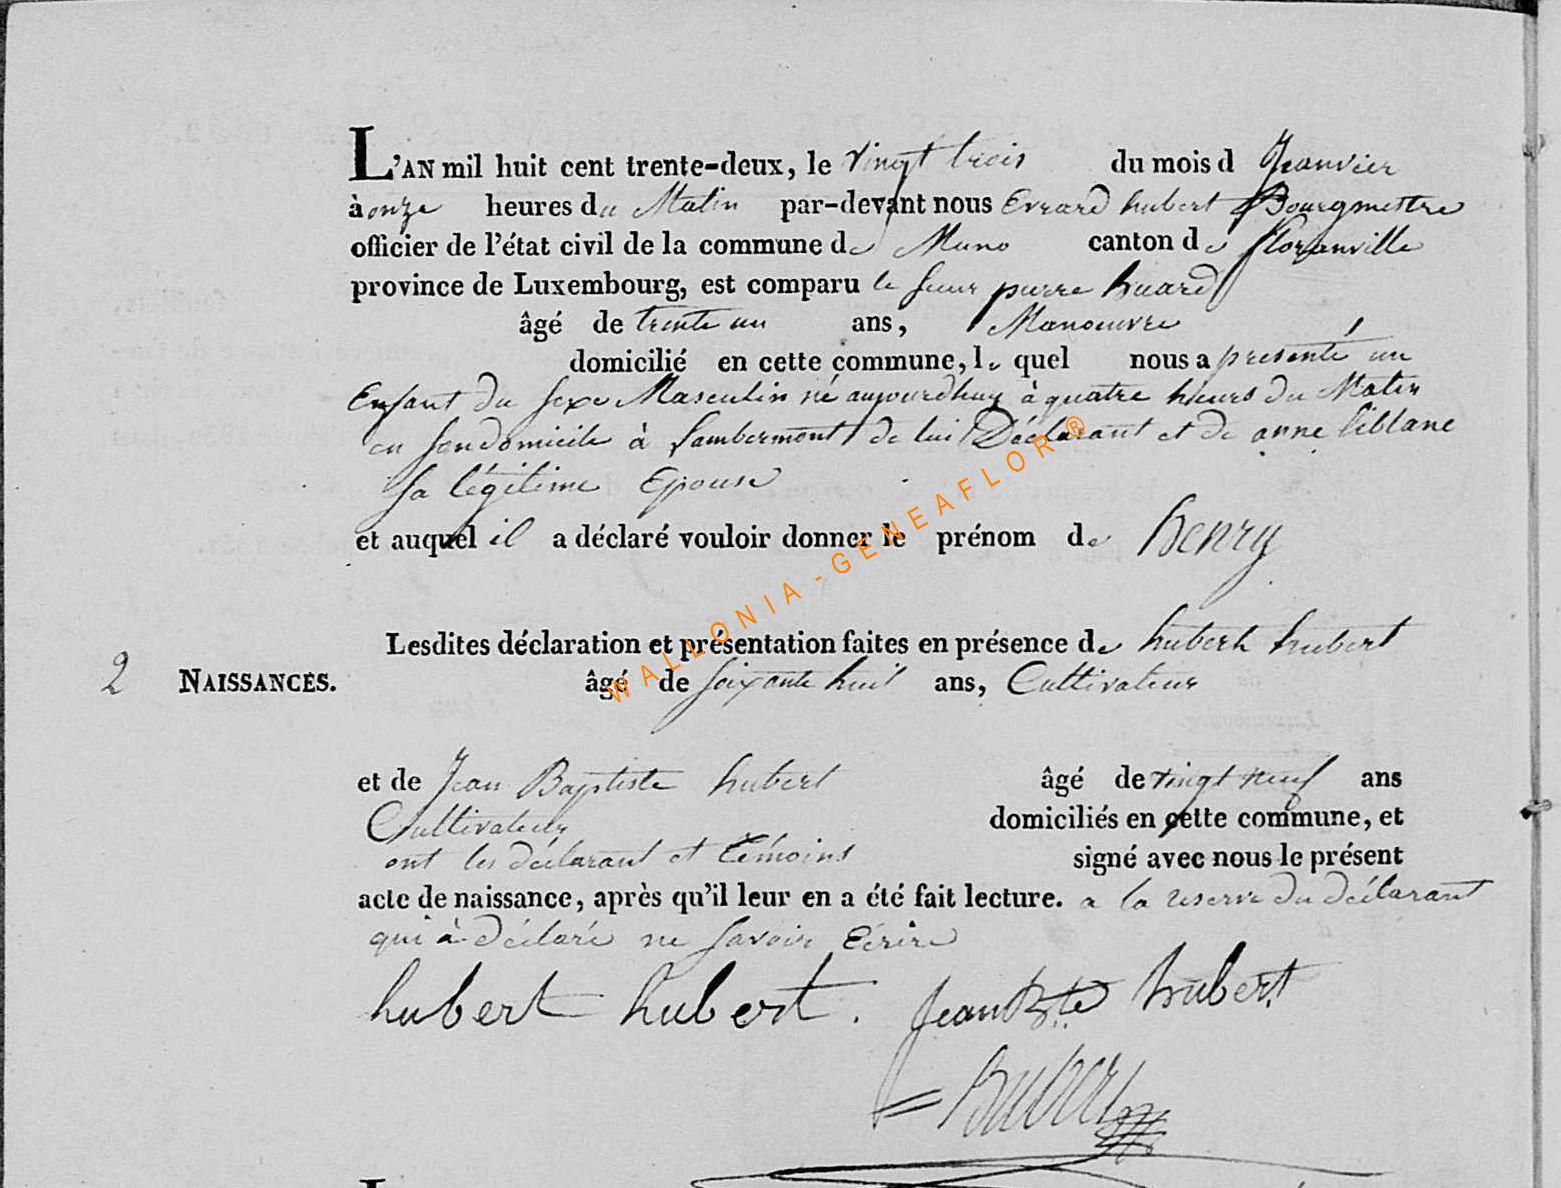 L'AN mil huit cent trente-deux, le vingt trois du mois d Jeanvier
à onze heures du Matin par-devant nous Evrard hubert Bourgmestre
officier de l'état civil de la commune de Muno canton de floranville
province de Luxembourg, est comparu le sieur pierre huard
âgé de trente un ans, Manoeuvre
domicilié en cette commune, le quel nous a presenté un
Enfant du sexe Masculin né aujourdhuy à quatre heures du Matin
en son domicile à Lambermont de lui Déclarant et de anne leblanc
sa légitime Epouse
et auquel il a déclaré vouloir donner le prénom de henry
Lesdites déclaration et présentation faites en présence de hubert hubert
2 NAISSANCES. âgé de soixante huit ans, Cultivateur
et de Jean Baptiste hubert âgé de vingt neuf ans
Cultivateur domiciliés en cette commune, et
ont les déclarant et témoins signé avec nous le présent
acte de naissance, après qu'il leur en a été fait lecture. a la reserve du déclarant
qui à déclaré ne savoir Ecrire
hubert hubert. Jean Bte hubert
hubert
WALLONIA-GENEAFLOR®